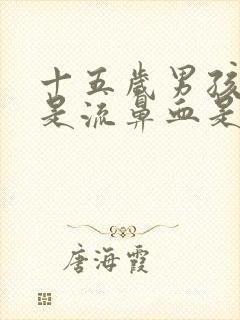 十五岁男孩
是流鼻血是
唐海霞